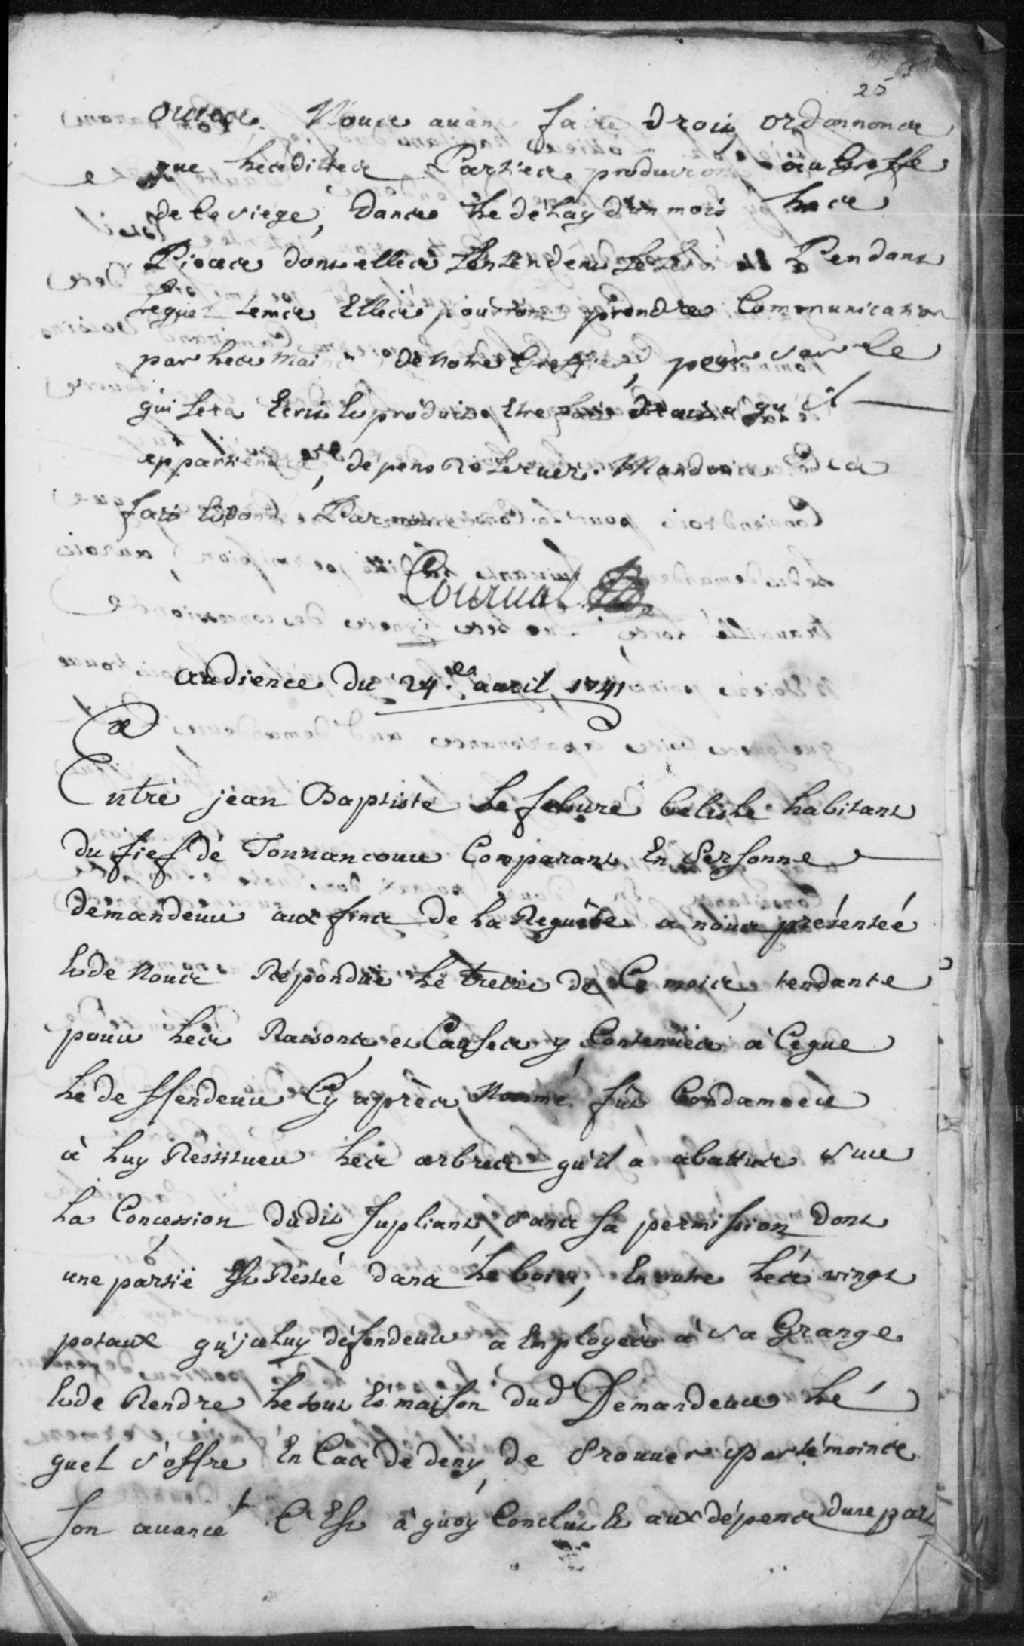 25
ouies. Nous avant faire droit ordonnons
que lesdittes Parties produiront au Greffe
de ce siege, dans le délay d'un mois, les
Pieces dont elles entendent se Pendant
lequel tems Elles pourront prendre Communication
par les mains de notre Greffier, pour sur le
qui sera Ecrit et produit Etre fait droit a qu'il
appartiendra, dépens Réservez. Mandons &ca
fait et donné Par nous
Courval
audience du 24.es avril 1741
Entre jean Baptiste Lefebvre belisle habitant
du fief de Tonnancour Comparant En Personne
demandeur aux fins de la Requête a nous présenteé
et de Nous Répondüe le treize de Ce mois, tendante
pour les Raisons et Causes y Contenües à Ceque
le deffendeur Cy après Nommé fut Condamnée
à luy Réstituer les arbres qu'il a abattus sur
la Concession dudit supliant, sans sa permission dont
une partïe Est Restée dans le bois, En outre les vingt
potaux qu'jceluy défendeur a Employés à sa Grange
et de Rendre le tout la maison dud Demandeur le
quel s'offre En Cas de deny de Prouver par témoins
son avancé C'Est à quoy Conclut Et aux dépens d'une part